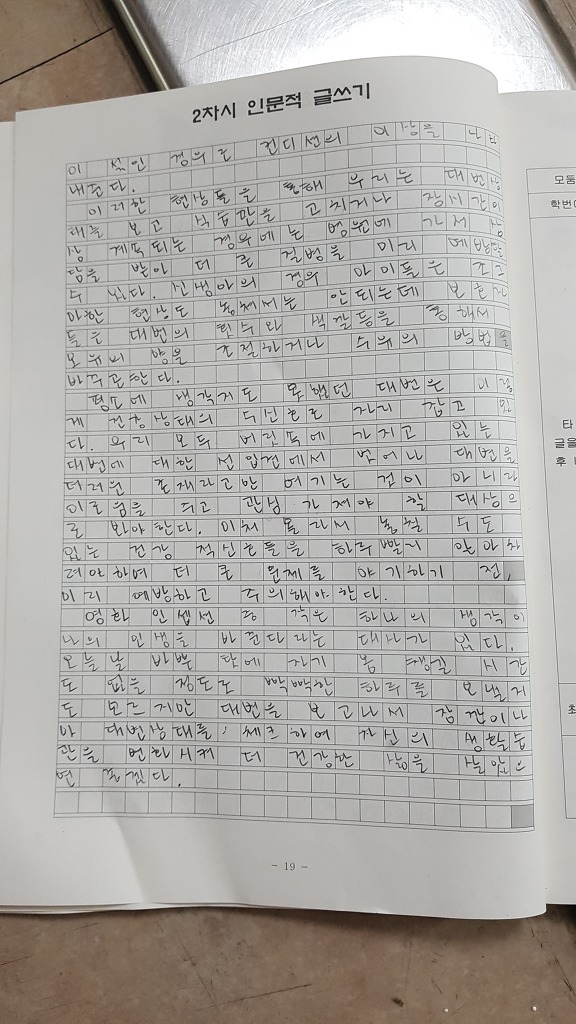 2차시 인문적 글쓰기
이 섞인 경우로 컨디션의 이상을 나타
내준다.
이러한 현상들을 통해 우리는 대변상
태를 보고 식습관을 고치거나 장시간이
상 계속되는 경우에는 병원에 가서 상
담을 받아 더 큰 질병을 미리 예방할
수 있다. 신생아의 경우 아이들은 조그
마한 현상도 놓쳐서는 안되는데 부모가
들은 대변의 횟수와 색깔등을 통해서
모유의 양을 조절하거나 수유의 방법을
바꾸곤한다.
평소에 생각지도 못했던 대변은 이렇
게 건강상태의 적신호로 자리 잡고 있
다. 우리 모두 머릿속에 가지고 있는
대변에 대한 선입견에서 벗어나 대변을
더러운 존재라고만 여기는 것이 아니라
이로움을 두고 관심 가져야 할 대상으
로 봐야한다. 미처 몰라서 놓칠 수도
있는 건강 적신호들을 하루빨리 알아차
려야하며 더 큰 문제를 야기하기 전,
미리 예방하고 주의해야한다.
영화 인셉션 중 작은 하나의 생각이
나의 인생을 바꾼다라는 대사가 있다.
오늘날 바쁜 탓에 자기 몸 챙길 시간
도 없을 정도로 빡빡한 하루를 보낼지
도 모르지만 대변을 보고나서 잠깐이나
마 대변상태를 체크하여 자신의 생활습
관을 변화시켜 더 건강한 삶을 살았으
면 좋겠다.
- 19 -
모둠
학번
타
글을
후 ㄴ
최